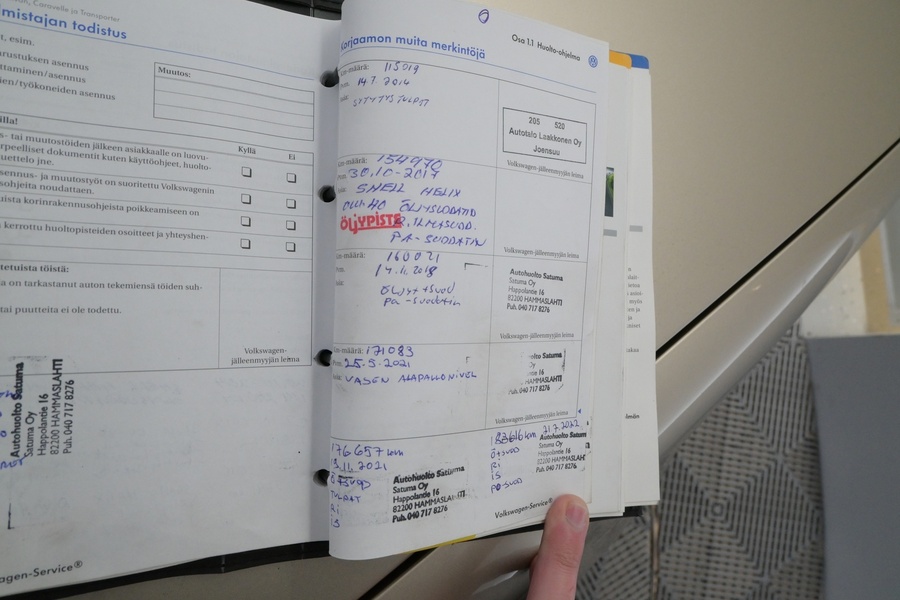 an, Caravelle ja Transporter
mistajan todistus
, esim.
arustuksen asennus
ttaminen/asennus
ien/työkoneiden asennus
Muutos:
illa!
s- tai muutostöiden jälkeen asiakkaalle on luovu-
rpeelliset dokumentit kuten käyttöohjeet, huolto-
uettelo jne.
Kyllä
Ei
sennus- ja muutostyöt on suoritettu Volkswagenin
sohjeita noudattaen.
uista korinrakennusohjeista poikkeamiseen on
kerrottu huoltopisteiden osoitteet ja yhteyshen-
tetuista töistä:
a on tarkastanut auton tekemiensä töiden suh-
tai puutteita ei ole todettu.
Volkswagen-
jälleenmyyjän leima
Autohuolto Satuma
Satuma Oy
Happolantie 16
82200 HAMMASLAHTI
Puh. 040 717 8276
agen-Service®
Osa 1.1 Huolto-ohjelma
Korjaamon muita merkintöjä
Km-määrä: 115019
Pvm. 14.7.2014
SYTYTYSTULPAT
205 520
Autotalo Laakkonen Oy
Joensuu
Volkswagen-jälleenmyyjän leima
Km-määrä: 154970
30.10-2017
SHELL HELIX
ÖLJYSUODATIN
ÖLJYPISTE
ILMASUOD.
PA-SUODATIN
Volkswagen-jälleenmyyjän leima
Km-määrä: 160021
Pvm.
Öljyt+suod
pa-suodatin
Autohuolto Satuma
Satuma Oy
Happolantie 16
82200 HAMMASLAHTI
Puh. 040 717 8276
Volkswagen-jälleenmyyjän leima
Km-määrä: 171083
Pvm. 25.5.2021
VASEN ALAPALLONIVEL
Volkswagen-jälleenmyyjän leima
176657 km
Ö+SUOD
TULPAT
Ri
is
Autohuolto Satuma
Satuma Oy
Happolantie 16
82200 HAMMASLAHTI
Puh. 040 717 8276
21.7.2022
Ö+suod
Ri
is
pa-suod
Volkswagen-Service®